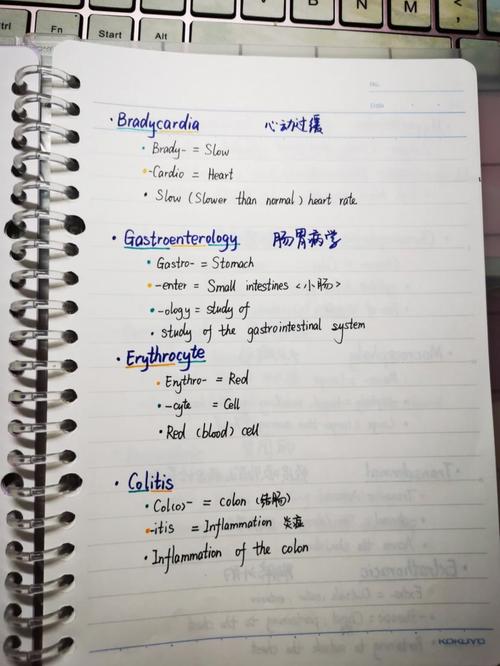 Fn
Start
Alt
Z
X
C
V
B
N
M
<
No.
Date
· Bradycardia 心动过缓
· Brady- = Slow
· -Cardio = Heart
· Slow (Slower than normal) heart rate
· Gastroenterology 肠胃病学
· Gastro- = Stomach
· -enter = Small intestines <小肠>
· -ology = study of
· study of the gastrointestinal system
· Erythrocyte
· Erythro- = Red
· -cyte = Cell
· Red (blood) cell
· Colitis
· Col(o)- = colon (结肠)
· -itis = Inflammation 炎症
· Inflammation of the colon
KOKUYO